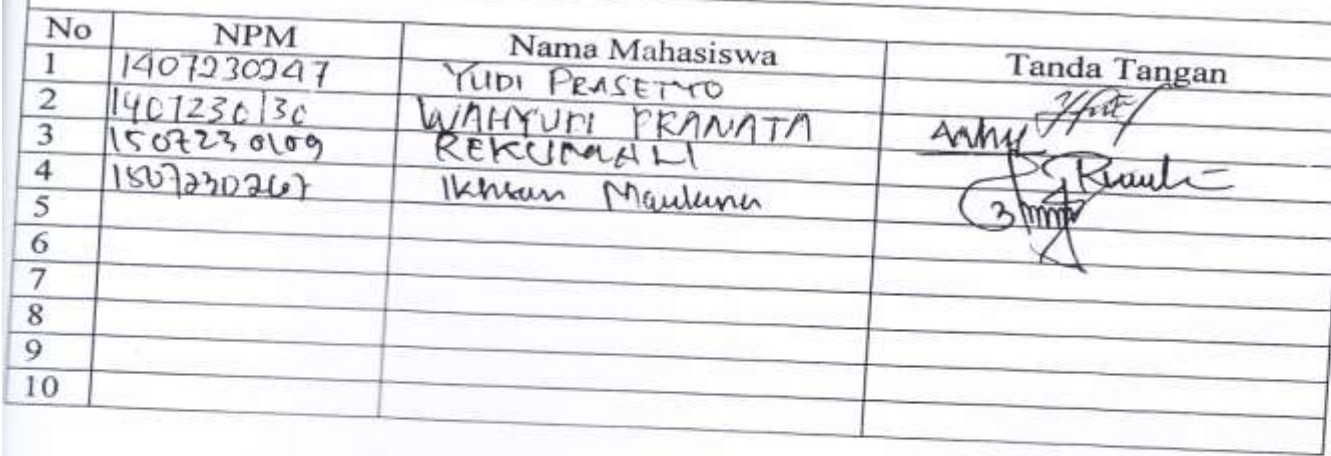 No NPM Nama Mahasiswa Tanda Tangan
1 1407230247 YUDI PRASETYO
2 1407230130 WAHYUDI PRANATA
3 1507230109 REKUMALI
4 1507230267 Ikhsan Maulana
5
6
7
8
9
10